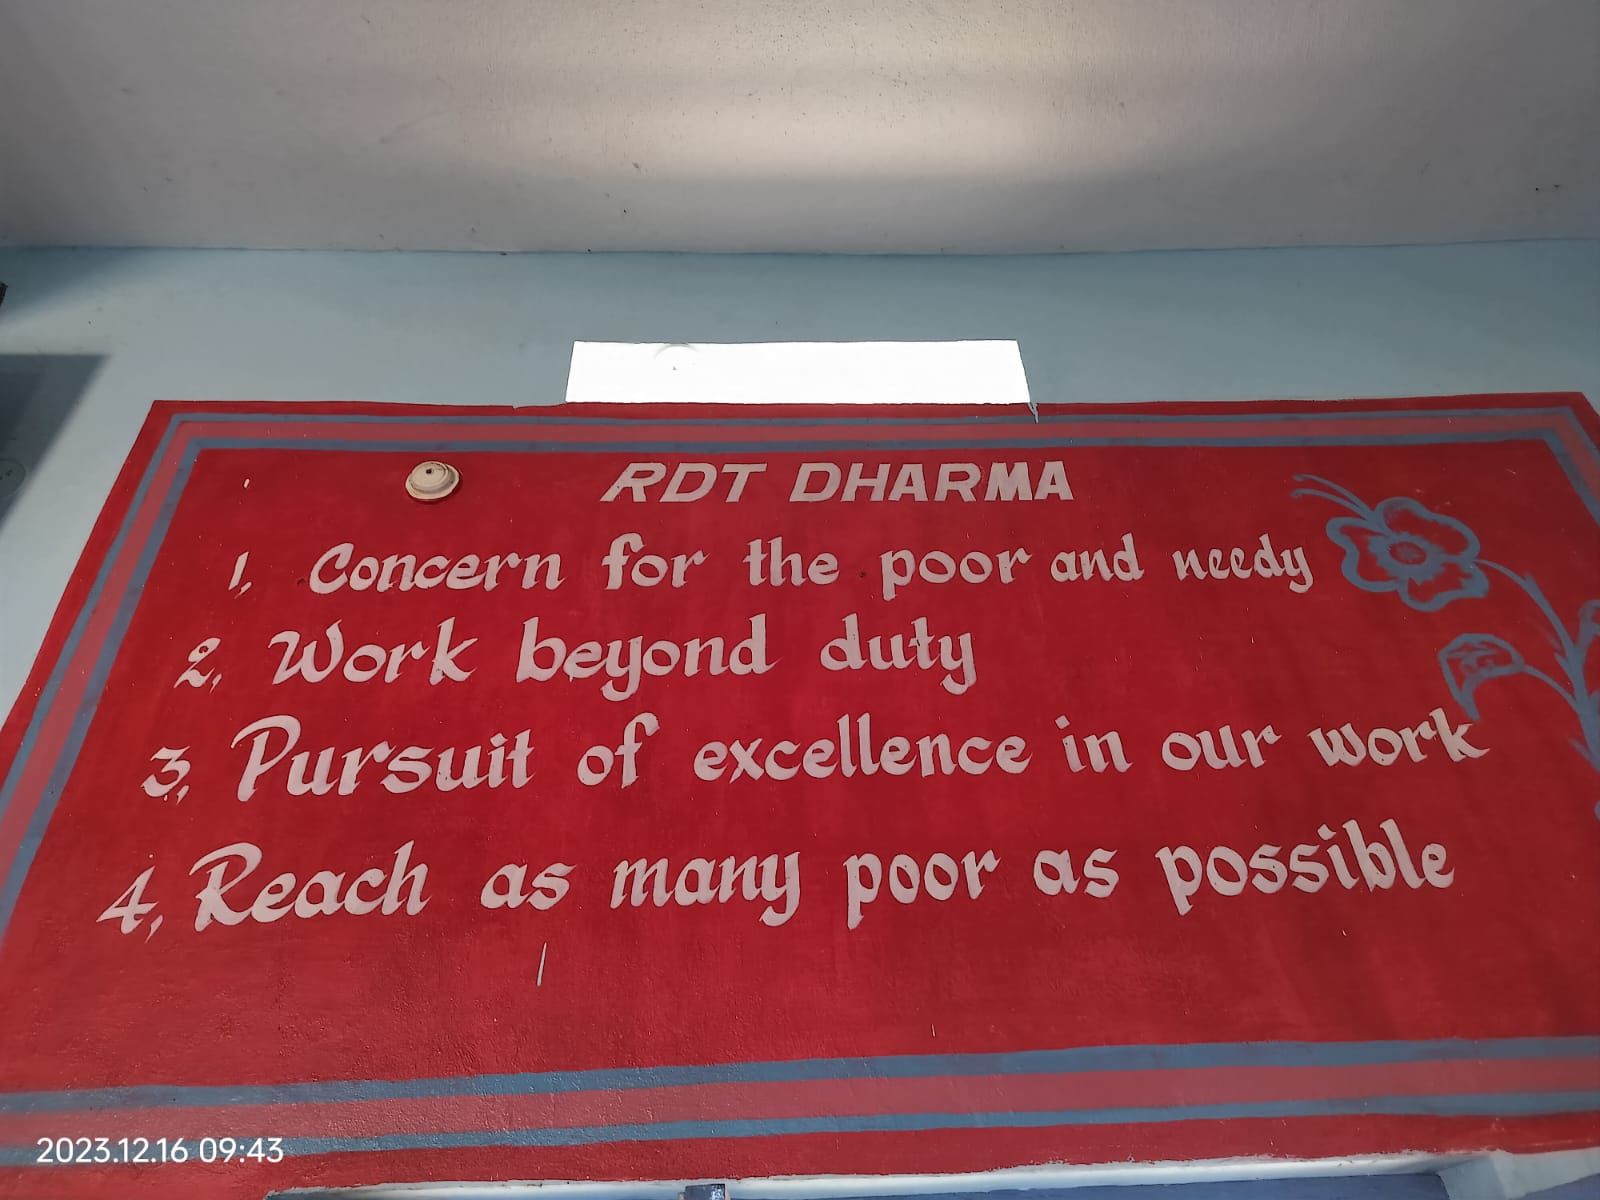 RDT DHARMA
1, Concern for the poor and needy
2, Work beyond duty
3, Pursuit of excellence in our work
4, Reach as many poor as possible
2023.12.16 09:43